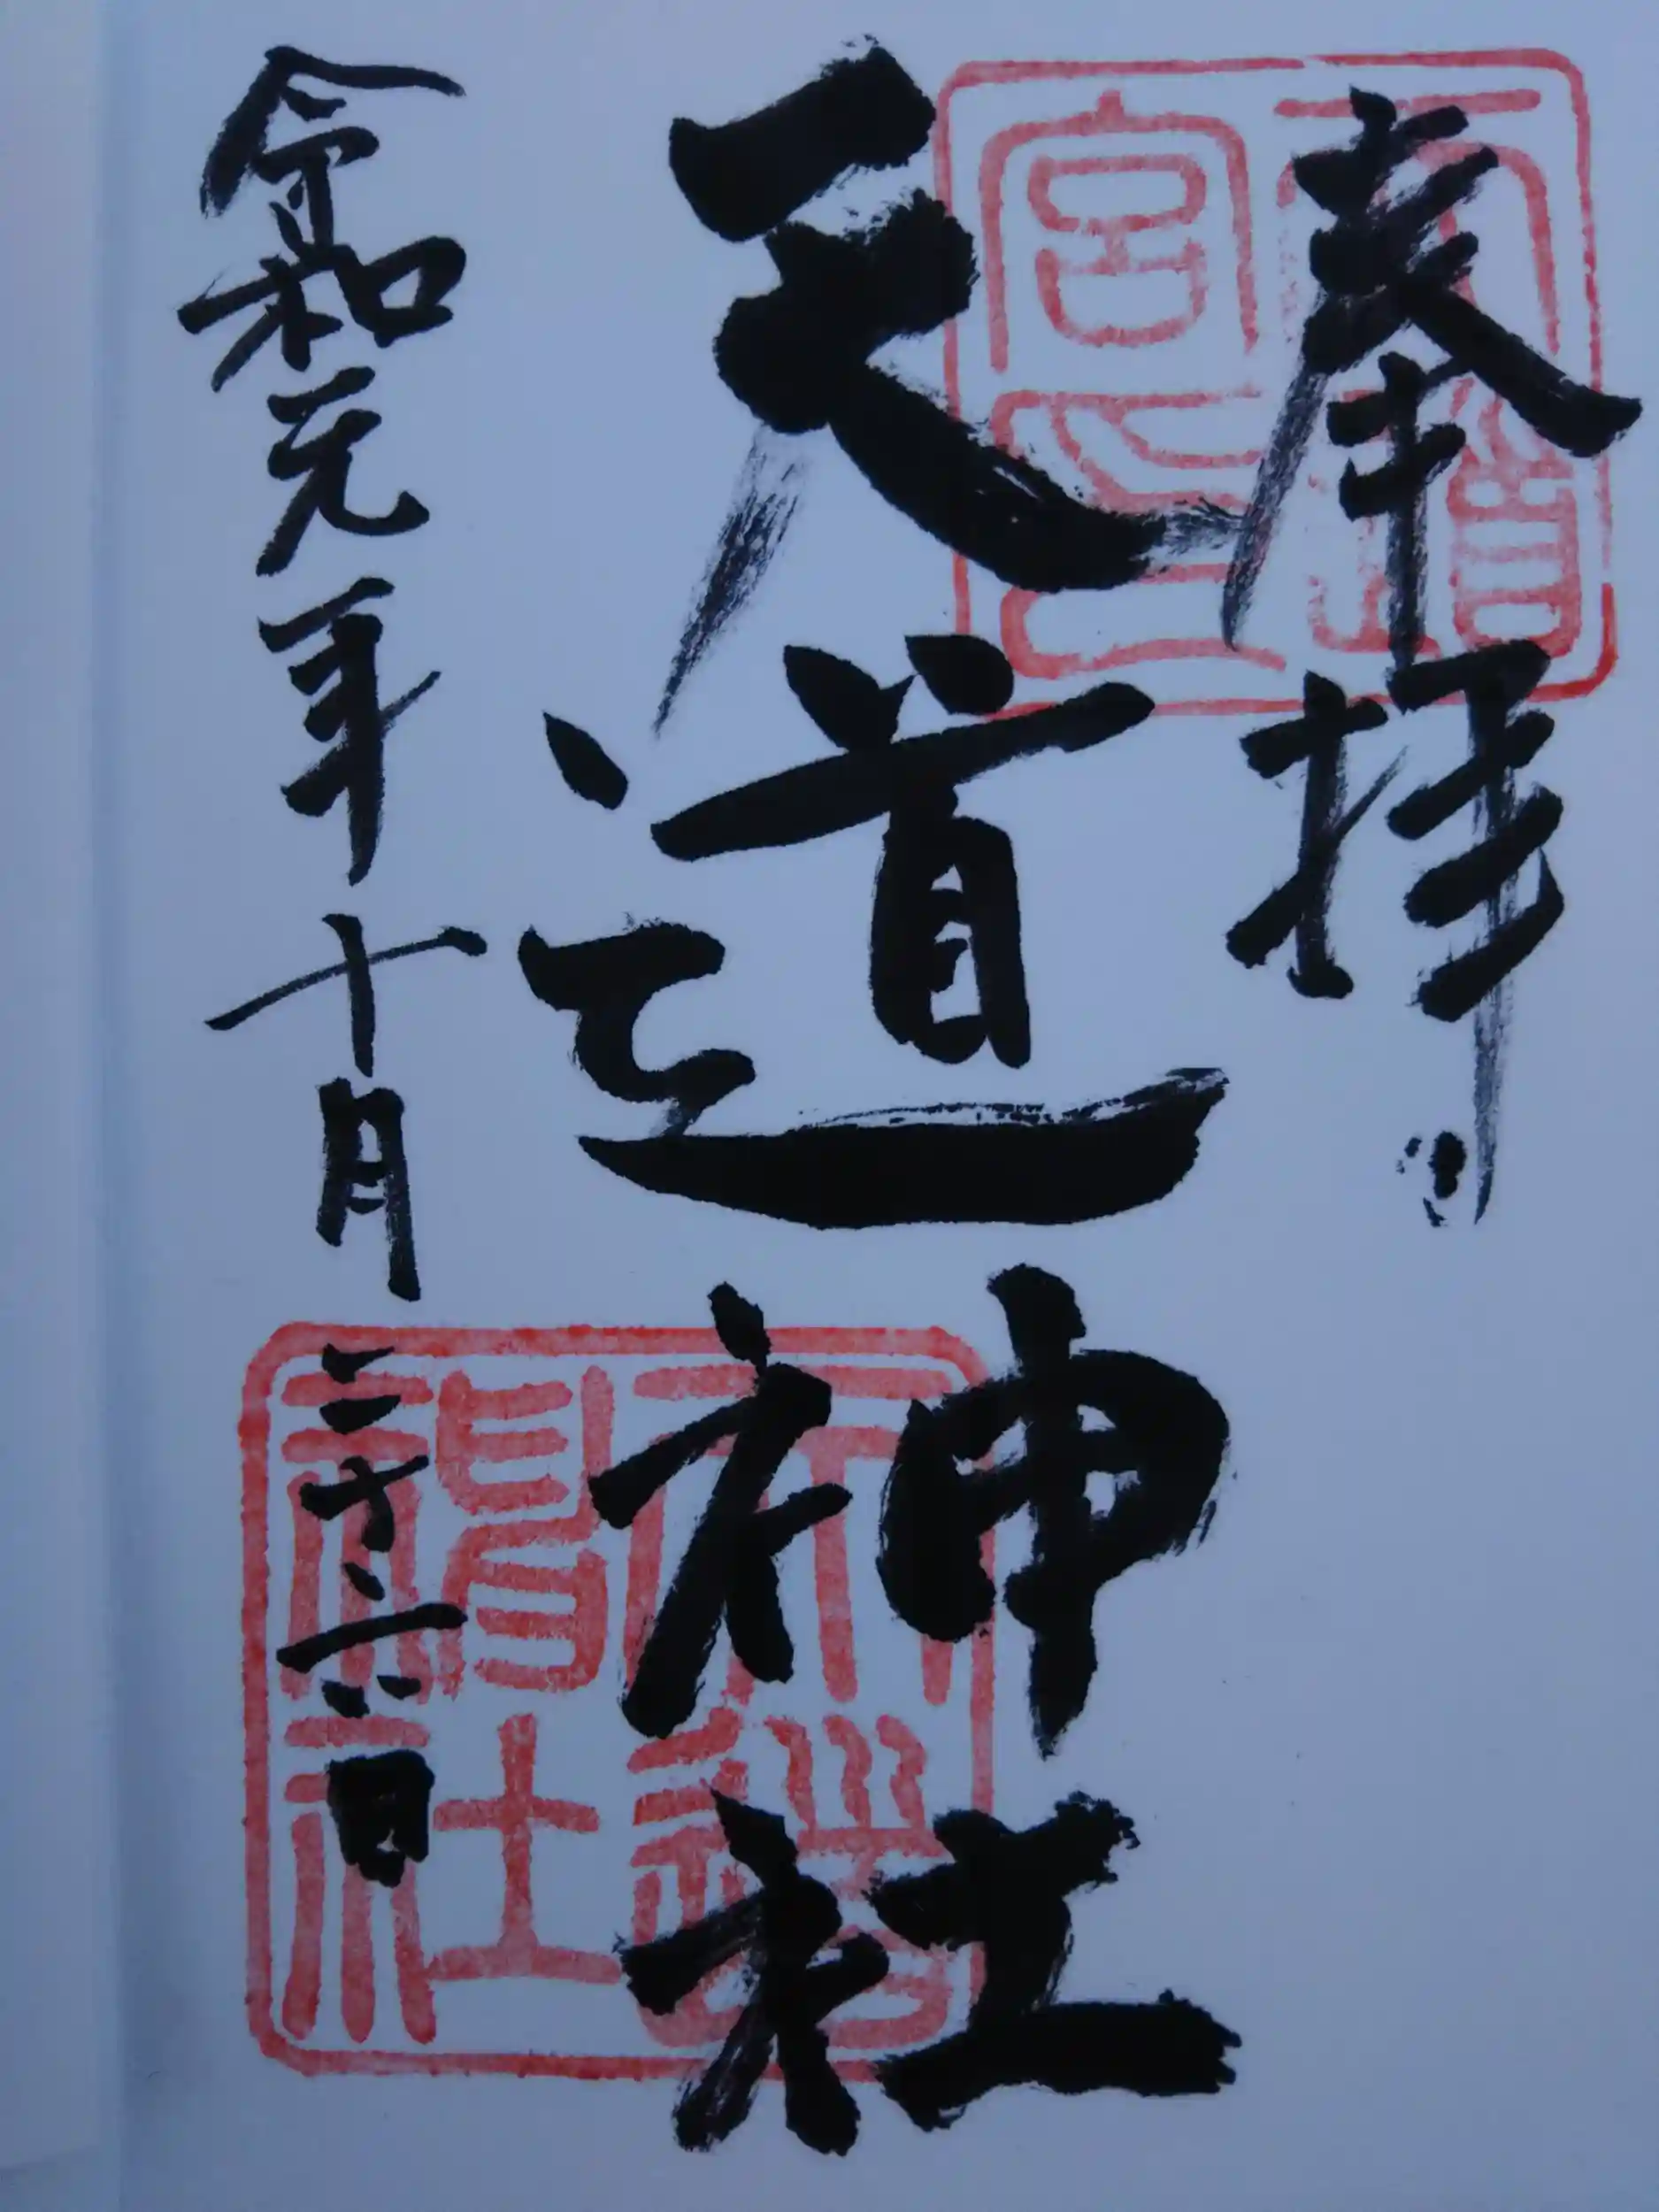 奉拝
天道神社
令和元年十月二十六日
天道神社